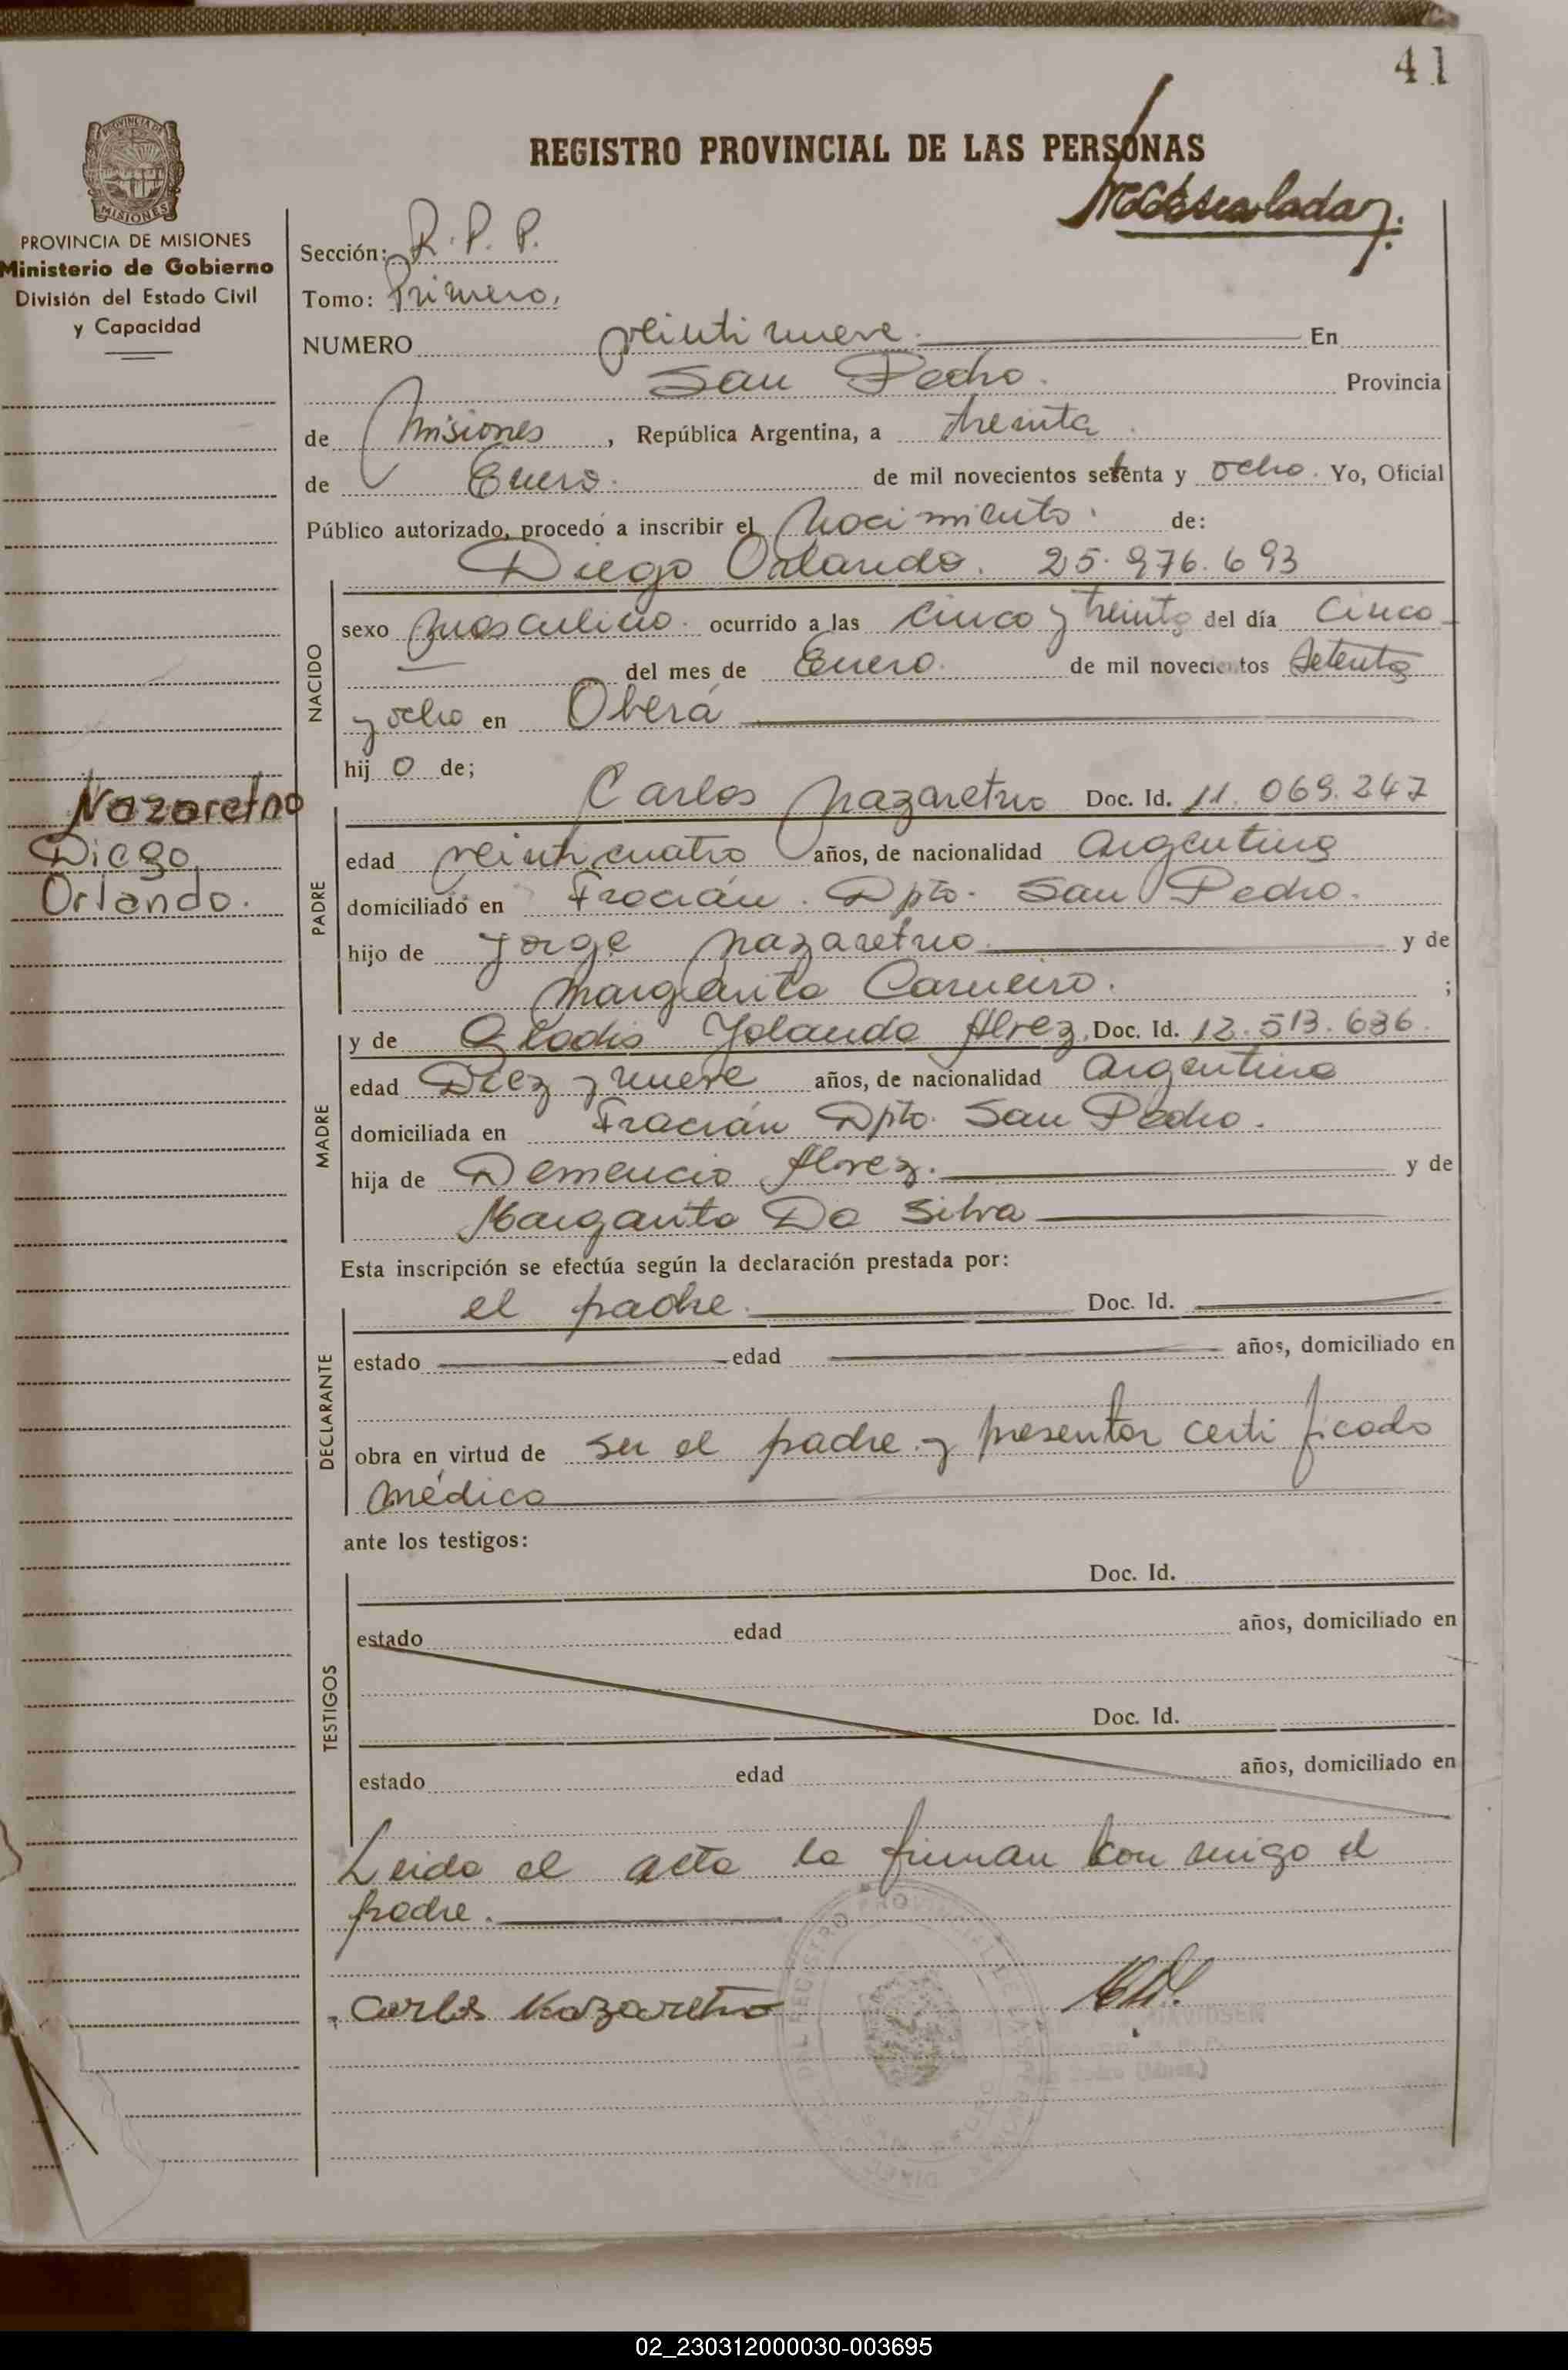 41
REGISTRO PROVINCIAL DE LAS PERSONAS
PROVINCIA DE MISIONES
Ministerio de Gobierno
División del Estado Civil
y Capacidad
Sección: R. P. P.
Tomo: Primero.
NUMERO veintinueve. En
San Pedro. Provincia
de Misiones, República Argentina, a treinta
de Enero. de mil novecientos setenta y ocho. Yo, Oficial
Público autorizado, procedo a inscribir el nacimiento. de:
Diego Orlando. 25.976.693
NACIDO
sexo masculino. ocurrido a las cinco y treinta del día cinco
del mes de Enero. de mil novecientos setenta
y ocho en Oberá
hijo de;
Nazaretno
Diego
Orlando.
PADRE
Carlos Nazaretno Doc. Id. 11.069.247
edad veinticuatro años, de nacionalidad Argentina
domiciliado en Fracrán. Dpto. San Pedro.
hijo de Jorge Nazaretno. y de
Margarita Carneiro. ;
MADRE
y de Gladis Yolanda Alvez. Doc. Id. 12.513.636.
edad Diez y nueve años, de nacionalidad Argentina
domiciliada en Fracrán Dpto. San Pedro.
hija de Demencio Alvez. y de
Margarita Da Silva
Esta inscripción se efectúa según la declaración prestada por:
DECLARANTE
el padre. Doc. Id.
estado edad años, domiciliado en
obra en virtud de ser el padre y presentar certificado
médico
ante los testigos:
TESTIGOS
Doc. Id.
estado edad años, domiciliado en
Doc. Id.
estado edad años, domiciliado en
Leida el acta la firman conmigo el
padre.
Carlos Nazaretno
02_230312000030-003695